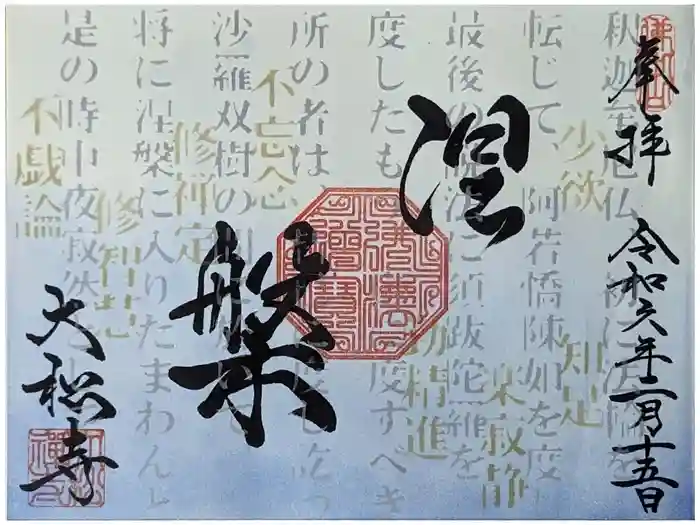 奉拝 令和六年二月十五日
涅槃
大 寺
釈迦牟尼仏、初に法輪を
転じて、阿若憍陳如を度
最後の説法に須跋陀羅を
度したも 度すべき
所の者は 度し訖っ
沙羅双樹の間に於いて
将に涅槃に入りたまわんと
是の時中夜寂然と
少欲
知足
楽寂静
勤精進
不忘念
修禅定
修智慧
不戯論